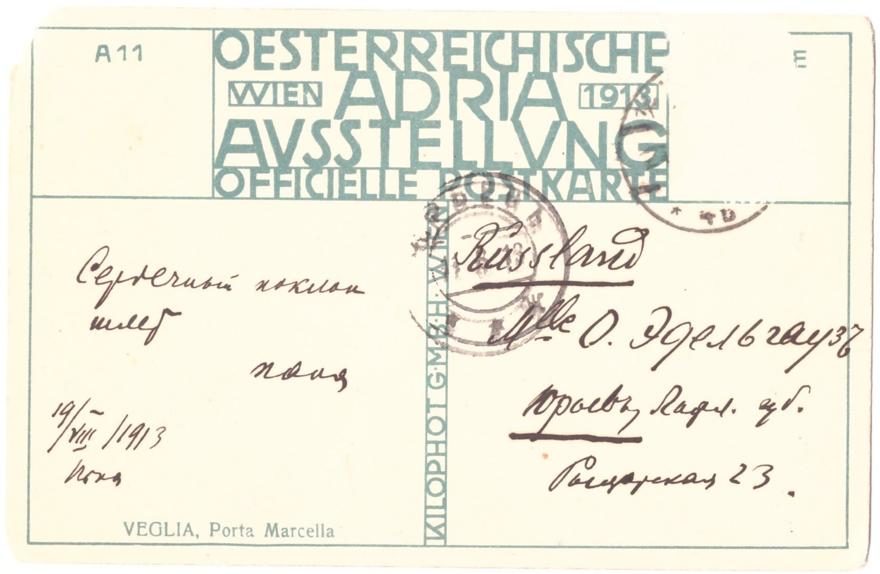 A 11
OESTERREICHISCHE
WIEN ADRIA 1913
AVSSTELLVNG
OFFICIELLE POSTKARTE
Сердечный поклон
шлет
19/VIII/1913
VEGLIA, Porta Marcella
KILOPHOT G.M.B.H. WIEN
Russland
Mlle О. Эдельгаузъ
Юрьевъ, Лифл. губ.
Рыцарская 23.